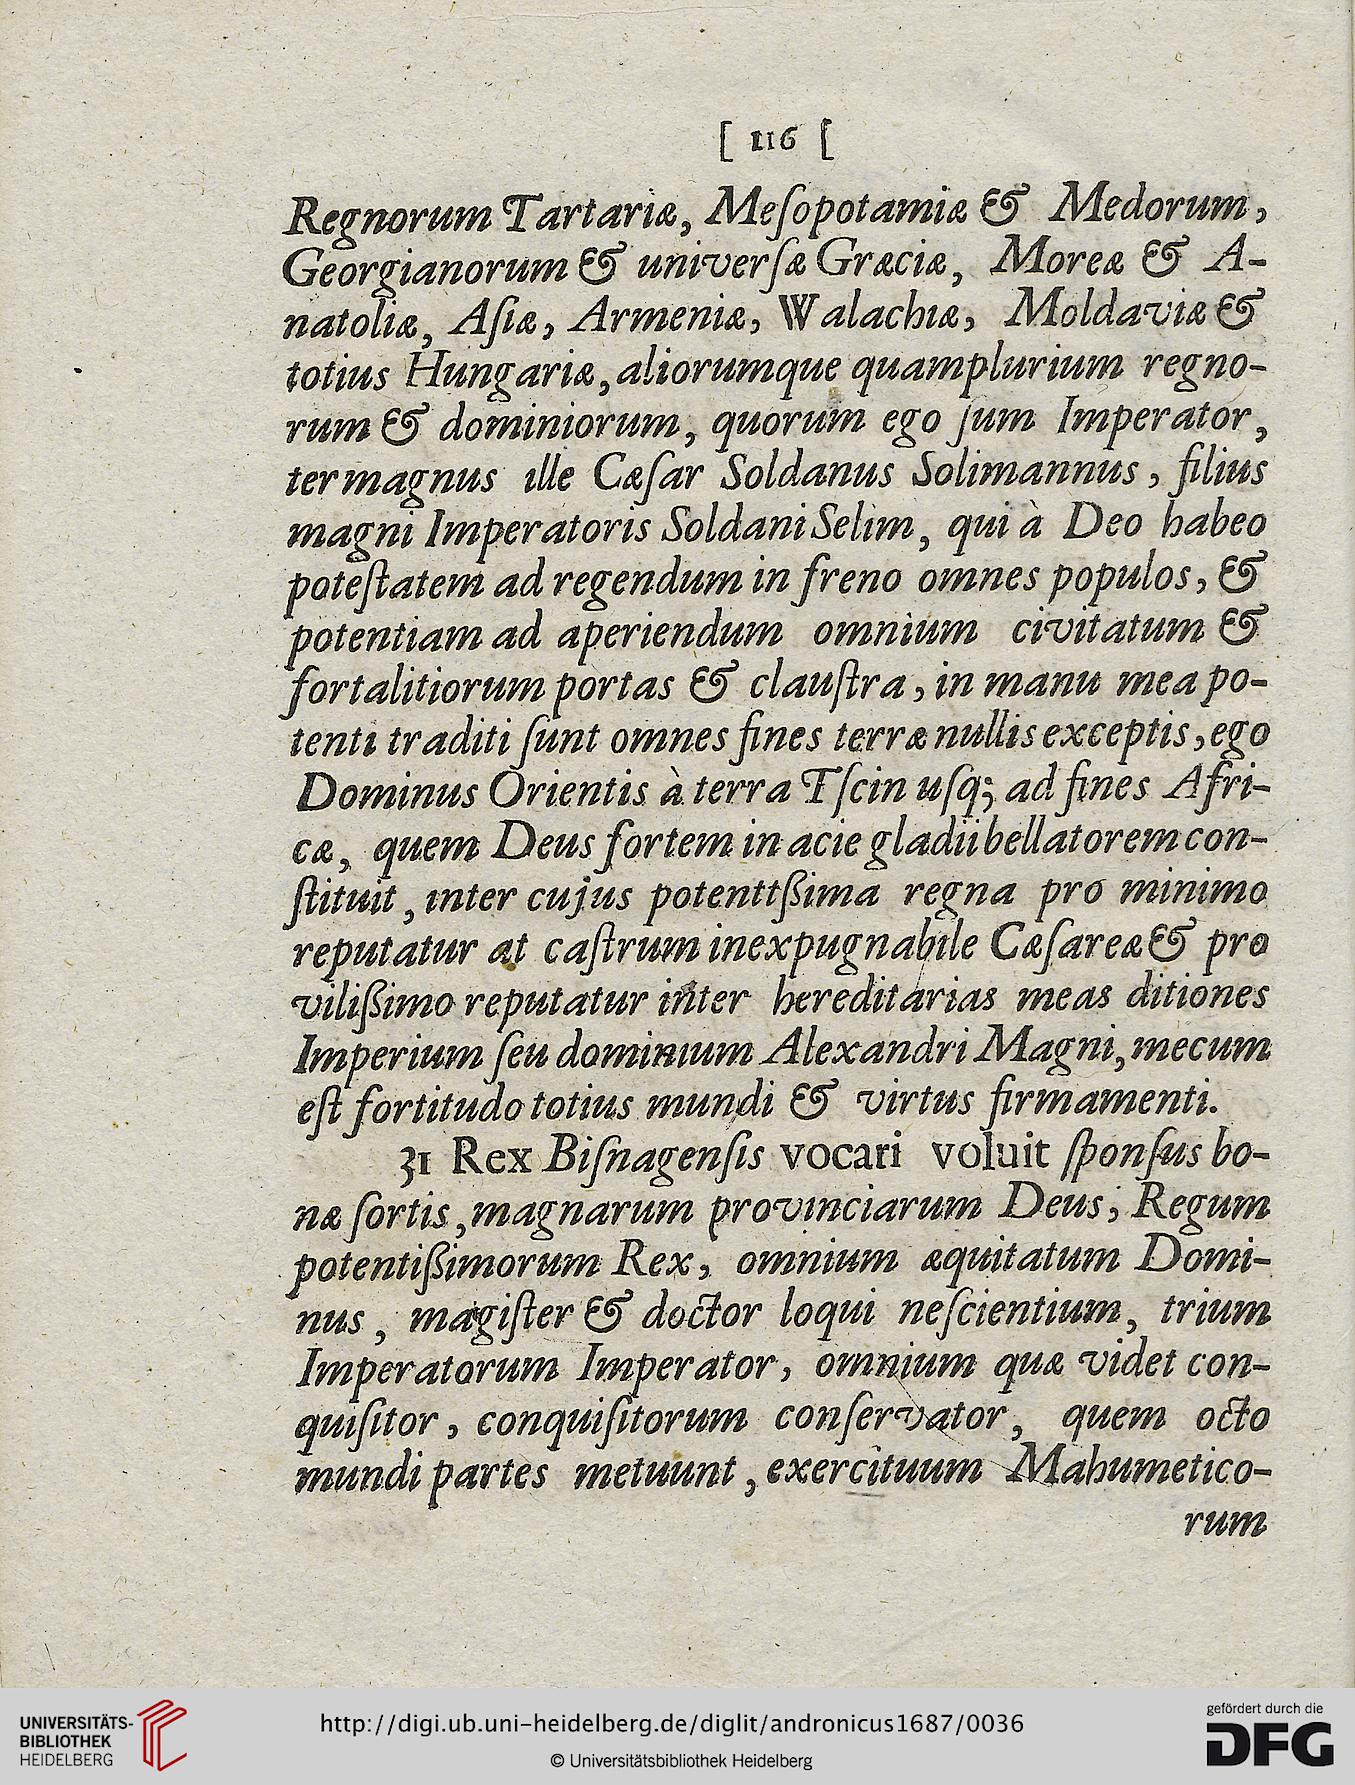 [ 116 [
Regnorum Tartariæ, Meſopotamiæ & Medorum,
Georgianorum & univerſæ Græciæ, Moreæ & A-
natoliæ, Aſiæ, Armeniæ, Walachiæ, Moldaviæ &
totius Hungariæ, aliorumque quamplurium regno-
rum & dominiorum, quorum ego ſum Imperator,
ter magnus ille Cæſar Soldanus Solimannus, filius
magni Imperatoris Soldani Selim, qui à Deo habeo
poteſtatem ad regendum in freno omnes populos, &
potentiam ad aperiendum omnium civitatum &
fortalitiorum portas & clauſtra, in manu mea po-
tenti traditi ſunt omnes fines terræ nullis exceptis, ego
Dominus Orientis à terra Tſcin uſq; ad fines Afri-
cæ, quem Deus fortem in acie gladii bellatorem con-
ſtituit, inter cujus potenttßima regna pro minimo
reputatur at caſtrum inexpugnabile Cæſareæ & pro
vilißimo reputatur inter hereditarias meas ditiones
Imperium ſeu dominium Alexandri Magni, mecum
eſt fortitudo totius mundi & virtus firmamenti.
31 Rex Biſnagenſis vocari voluit ſponſus bo-
næ ſortis, magnarum provinciarum Deus, Regum
potentißimorum Rex, omnium æquitatum Domi-
nus, magiſter & doctor loqui neſcientium, trium
Imperatorum Imperator, omnium quæ videt con-
quiſitor, conquiſitorum conſervator, quem octo
mundi partes metuunt, exercituum Mahumetico-
rum
UNIVERSITÄTS-
BIBLIOTHEK
HEIDELBERG
http://digi.ub.uni-heidelberg.de/diglit/andronicus1687/0036
© Universitätsbibliothek Heidelberg
gefördert durch die
DFG